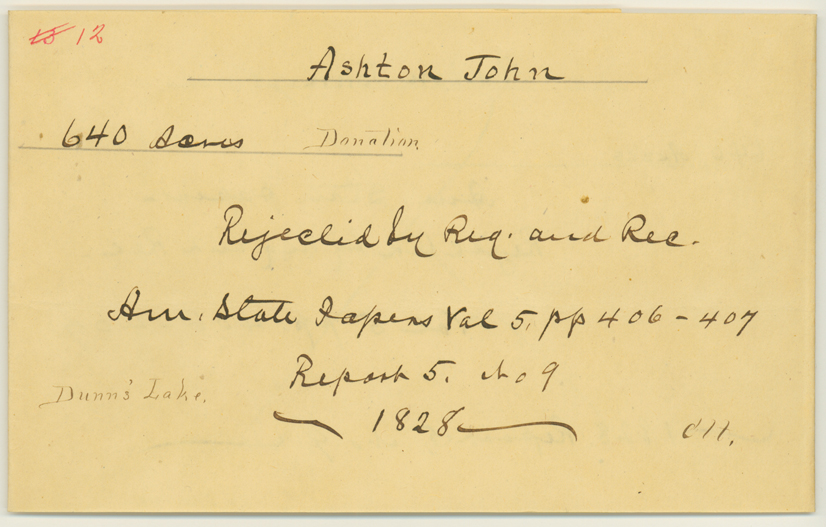 12
Ashton John
640 Acres Donation.
Rejected by Reg. and Rec.
Am. State Papers Vol 5, pp 406-407
Report 5. No 9
Dunn's Lake.
1828